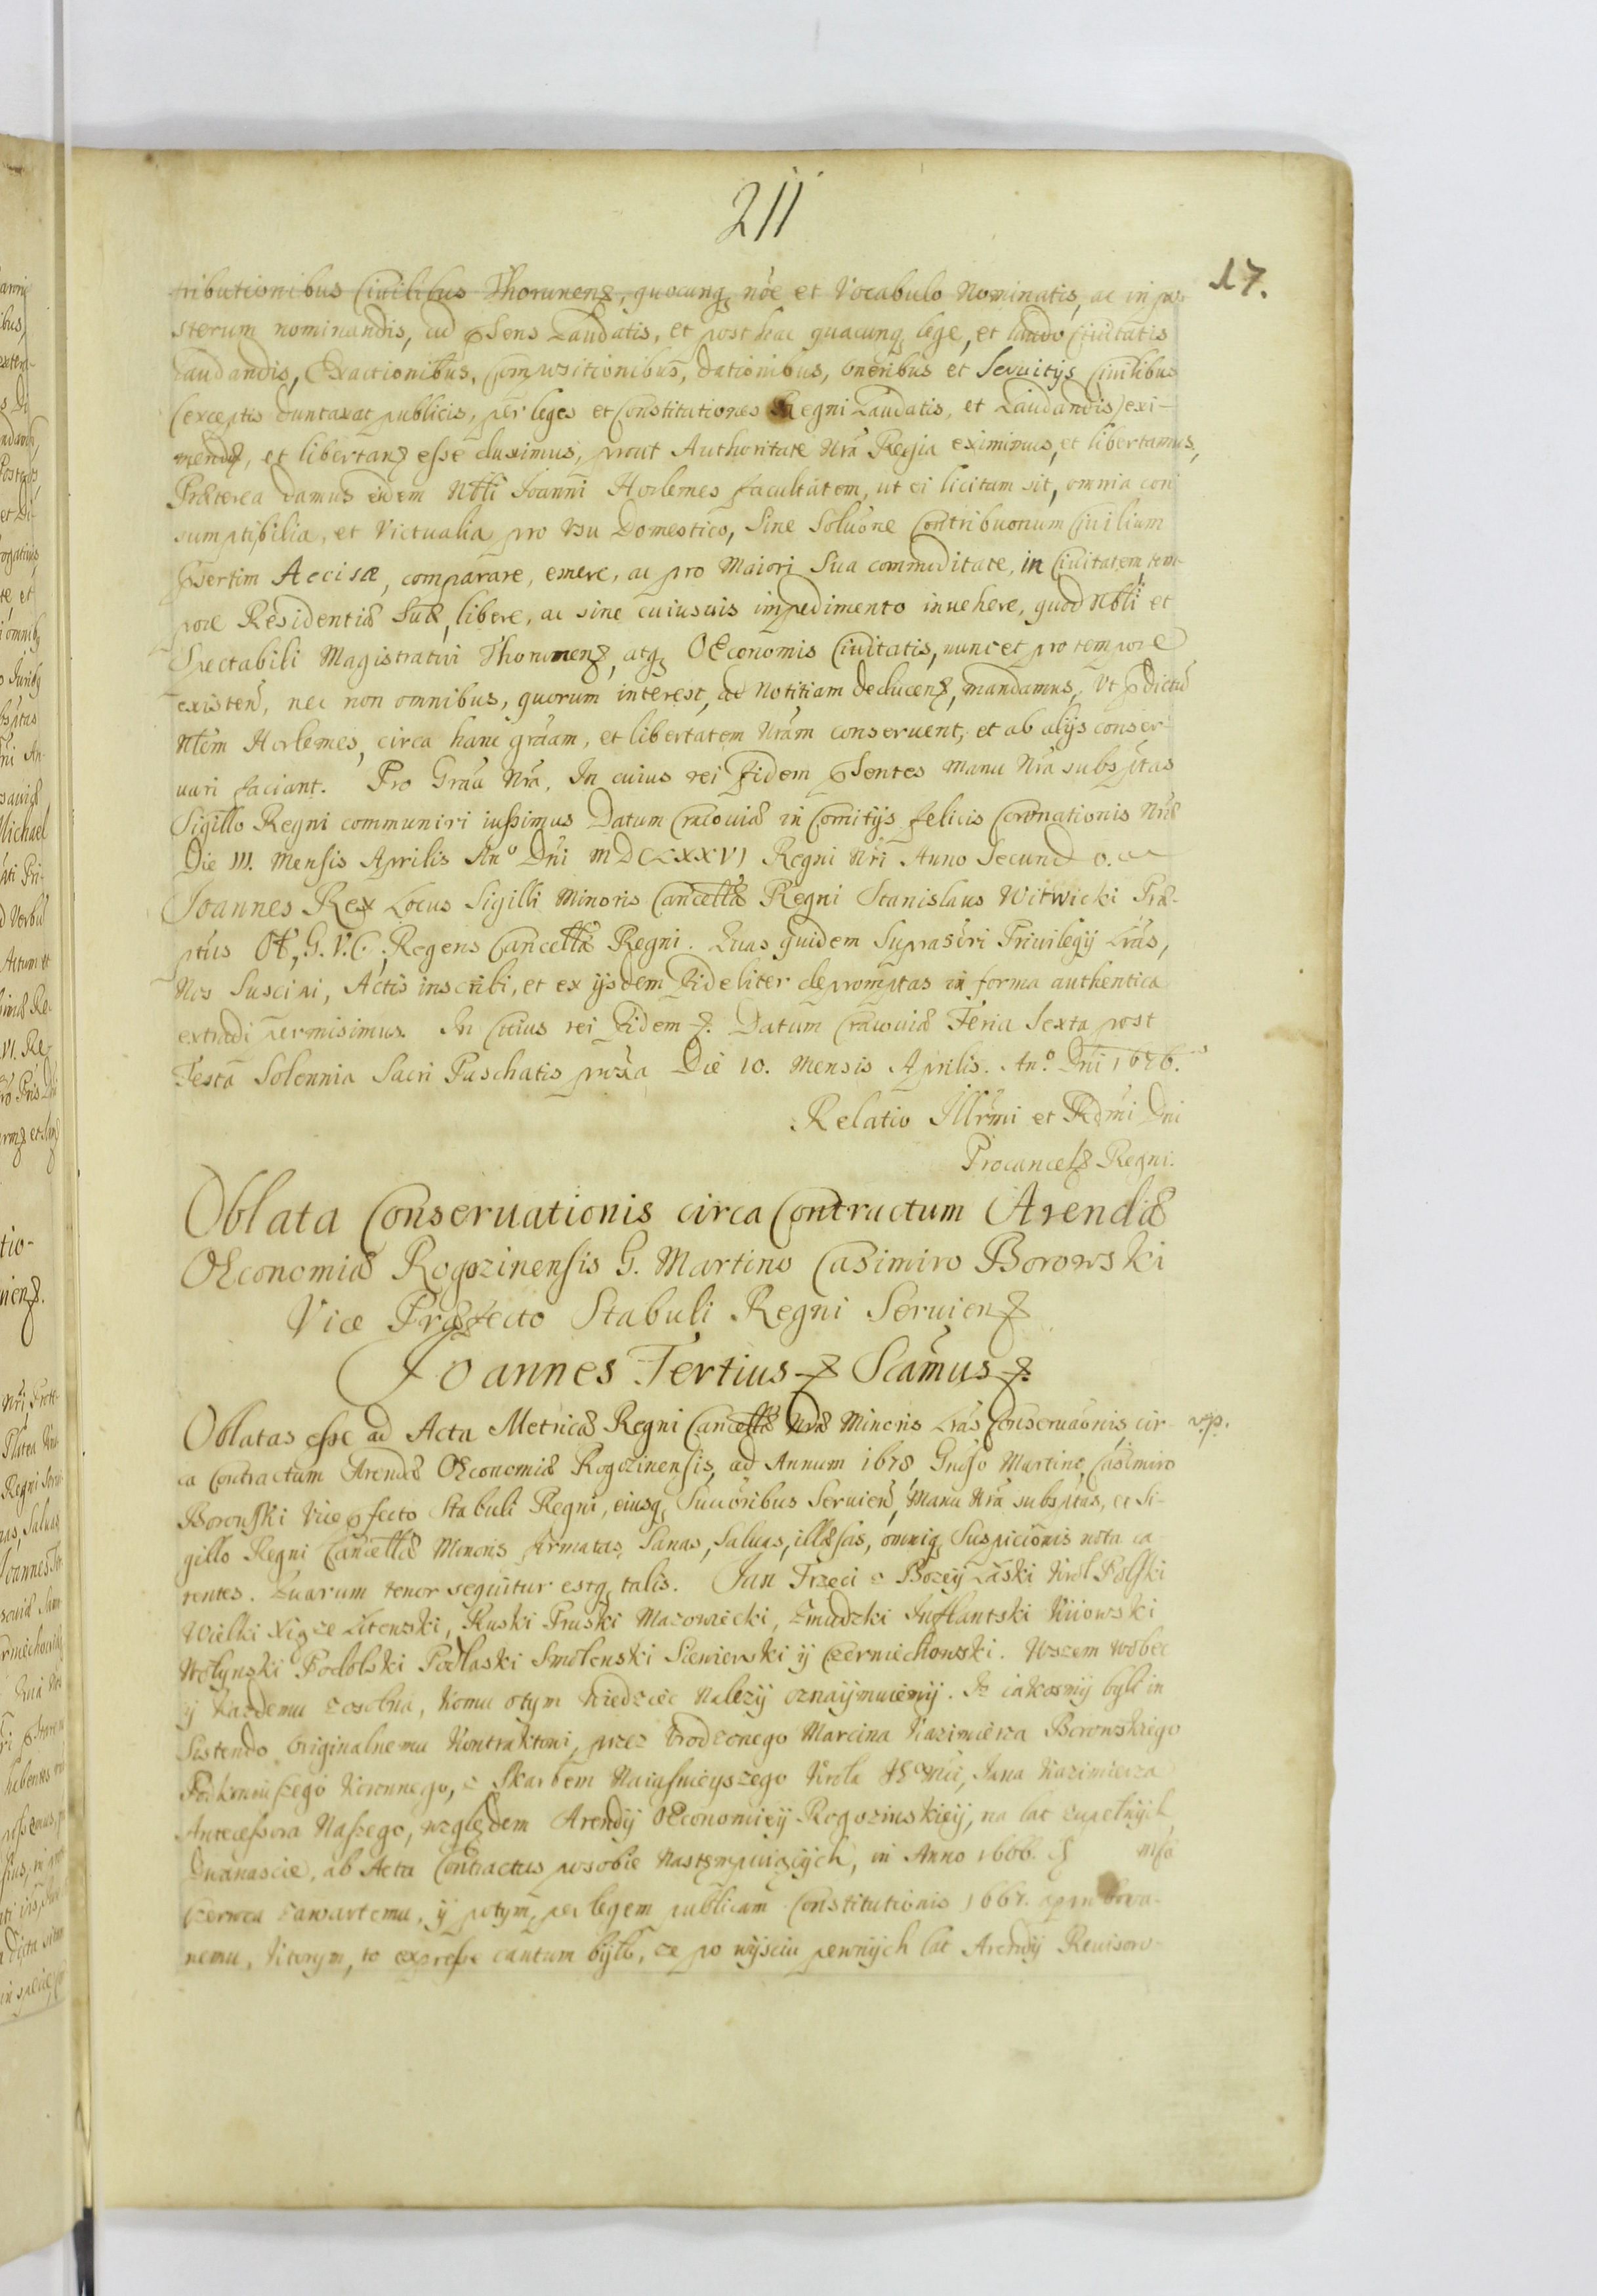 211
17.
tributionibus Ciuilibus Thorunen, quocunq nõe et Vocabulo Nominatis, ac in po-
sterum nominandis, ad psens Laudatis, et post hac quacunq lege, et laudo Ciuitatis
Laudandis, Exactionibus, Compositionibus, Dationibus, oneribus et Seruitijs Ciuilibus
(exceptis duntaxat publicis, per leges et Constitutiones Regni Laudatis, et Laudandis) exi-
mend, et libertan esse duximus, prout Authoritate Nra Regia eximimus, et libertamus,
Præterea Damus eidem Nbli Joanni Horlemes facultatem, ut ei licitum sit, omnia con
sumptibilia, et Victualia pro Vsu Domestico, Sine Soluõne Contribuonum Ciuilium
psertim Accisæ, comparare, emere, ac pro Maiori Sua commoditate, in Ciuitatem, tem-
pore Residentiæ Suæ, libere, ac sine cuiusuis impedimento inuehere, quod Nbli et
Spectabili Magistratui Thorunen, atq OEconomis Ciuitatis, nunc et pro tempore
existen, nec non omnibus, quorum interest, ad Notitiam deducen, mandamus, Vt pdictũ
Nlem Horlemes, circa hanc grãam, et libertatem Nram conseruent, et ab alijs conser-
uari faciant. Pro Grãa Nra, In cuius rei Fidem psentes Manu Nra subsptas
Sigillo Regni communiri iussimus Datum Cracouiæ in Comitijs felicis Coronationis Nræ
Die III. Mensis Aprilis Anº Dni MDCLXXVI Regni Nri Anno Secundo.
Joannes Rex Locus Sigilli Minoris Cancellæ Regni Stanislaus Witwicki Præ-
ptus G. V. C. Regens Cancellæ Regni. Quas quidem Suprascri Priuilegij Lras,
Nos Suscipi, Actis inscribi, et ex ijsdem Fideliter depromptas in forma authentica
extradi permisimus. In Cuius rei Fidem. Datum Cracouiæ Feria Sexta post
Festa Solennia Sacri Paschatis proxia Die 10. Mensis Aprilis. Anº. Dni 1676.
Relatio Illrmi et Rdmi Dni
Procancel Regni.
Oblata Conseruationis circa Contractum Arendæ
OEconomiæ Rogozinensis G. Martino Casimiro Borowski
Vice Præfecto Stabuli Regni Seruien
Joannes Tertius Scamus
Oblatas esse ad Acta Metricæ Regni Cancellæ Nræ Minoris Lras Conseruaonis, cir-
ca Contractum Arendæ OEconomiæ Rogozinensis, ad Annum 1678 Gnoso Martino, Casimiro
Borowski Vice pfecto Stabuli Regni, eiusq Succoribus Seruien, Manu Nra subsptas, et Si-
gillo Regni Cancellæ Minoris firmatas, Sanas, Saluas, illæsas, omniq Suspicionis nota ca-
rentes. Quarum tenor sequitur estq talis. Jan Trzeci z Bozey Łaski Krol Polski
Wielki Xiąze Litewski, Ruski Pruski Mazowiecki, Zmudzki Inflantski Kiiowski
Wołynski Podolski Podlaski Smolenski Siewierski ij Czerniechowski. Wszem wobec
ij Kazdemu zosobna, Komu otym Wiedziec Nalezij oznaijmuiemij. Iz iakosmij byli in
Sistendo Originalnemu Kontraktowi, przez Vrodzonego Marcina Kazimierza Borowskiego
Podkoniuszego Koronnego, z Skarbem Naiasnieyszego Krola Jana Kazimierza
Antecessora Naszego, względem Arendij OEconomieij Rogozinskieij, na lat zupełnijch
Dwanascie, ab Acto Contractus posobie Nastęmpuiącijch, in Anno 1666. msca
Czerwca zawartemu, ij potym, per legem publicam Constitutionis 1667. approbowa-
nemu, Ktorym, to expresse cautum byłø, ze po wijsciu pewnijch lat Arendij Rewisoro-